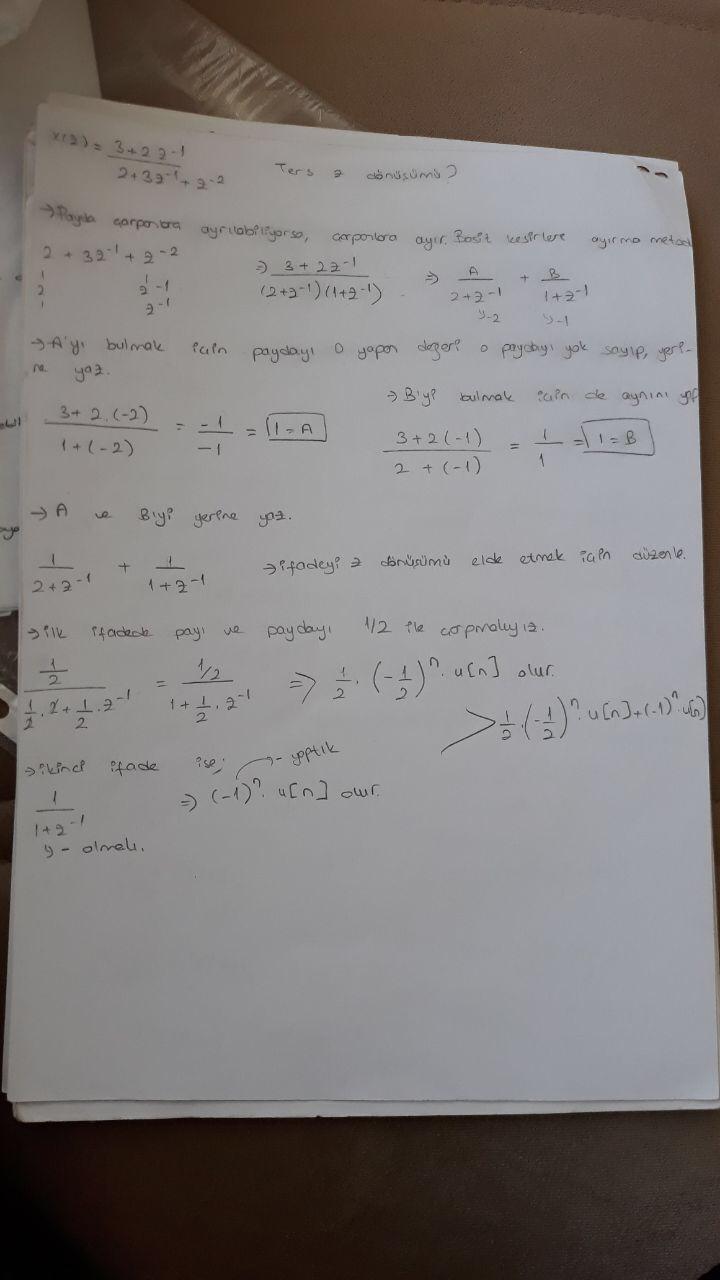 x(z) = (3+2z⁻¹)/(2+3z⁻¹+z⁻²) Ters z dönüşümü?
→ Payda çarpanlara ayrılabiliyorsa, çarpanlara ayır. Basit kesirlere ayırma metod
2 + 3z⁻¹ + z⁻² ⇒ (3+2z⁻¹)/((2+z⁻¹)(1+z⁻¹)) ⇒ A/(2+z⁻¹) + B/(1+z⁻¹)
2 z⁻¹ -2 -1
1 z⁻¹
→ A'yı bulmak için paydayı 0 yapan değeri o paydayı yok sayıp, yeri-
ne yaz.
→ B'yi bulmak için de aynını yap
(3+2.(-2))/(1+(-2)) = -1/-1 = 1 = A
(3+2(-1))/(2+(-1)) = 1/1 = 1 = B
→ A ve B'yi yerine yaz.
1/(2+z⁻¹) + 1/(1+z⁻¹) → ifadeyi z dönüşümü elde etmek için düzenle.
→ ilk ifadede payı ve paydayı 1/2 ile çarpmalıyız.
(1/2)/(1/2.2+1/2.z⁻¹) = (1/2)/(1+1/2.z⁻¹) ⇒ 1/2.(-1/2)ⁿ.u[n] olur.
> 1/2.(-1/2)ⁿ.u[n]+(-1)ⁿ.u[n]
→ ikinci ifade ise; → - yaptık
1/(1+z⁻¹) ⇒ (-1)ⁿ.u[n] olur.
- olmalı.